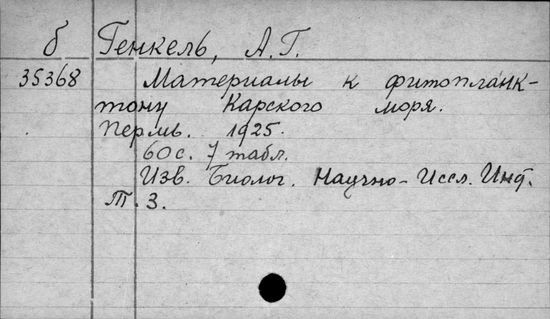 б Генкель, А.Г.
35368 Материалы к фитопланк-
тону Карского моря.
Пермь. 1925.
60с. 7 табл.
Изв. Биолог. Научно-Иссл. Инст.
Т. 3.